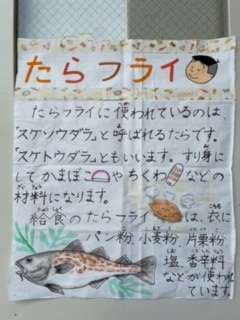 たらフライ
たらフライに使われているのは、
"スケソウダラ"と呼ばれるたらです。
"スケトウダラ"ともいいます。すり身に
してかまぼこやちくわなどの
材料になります。
給食のたらフライは、衣に
パン粉、小麦粉、片栗粉
塩、香辛料
などが使われ
ています。